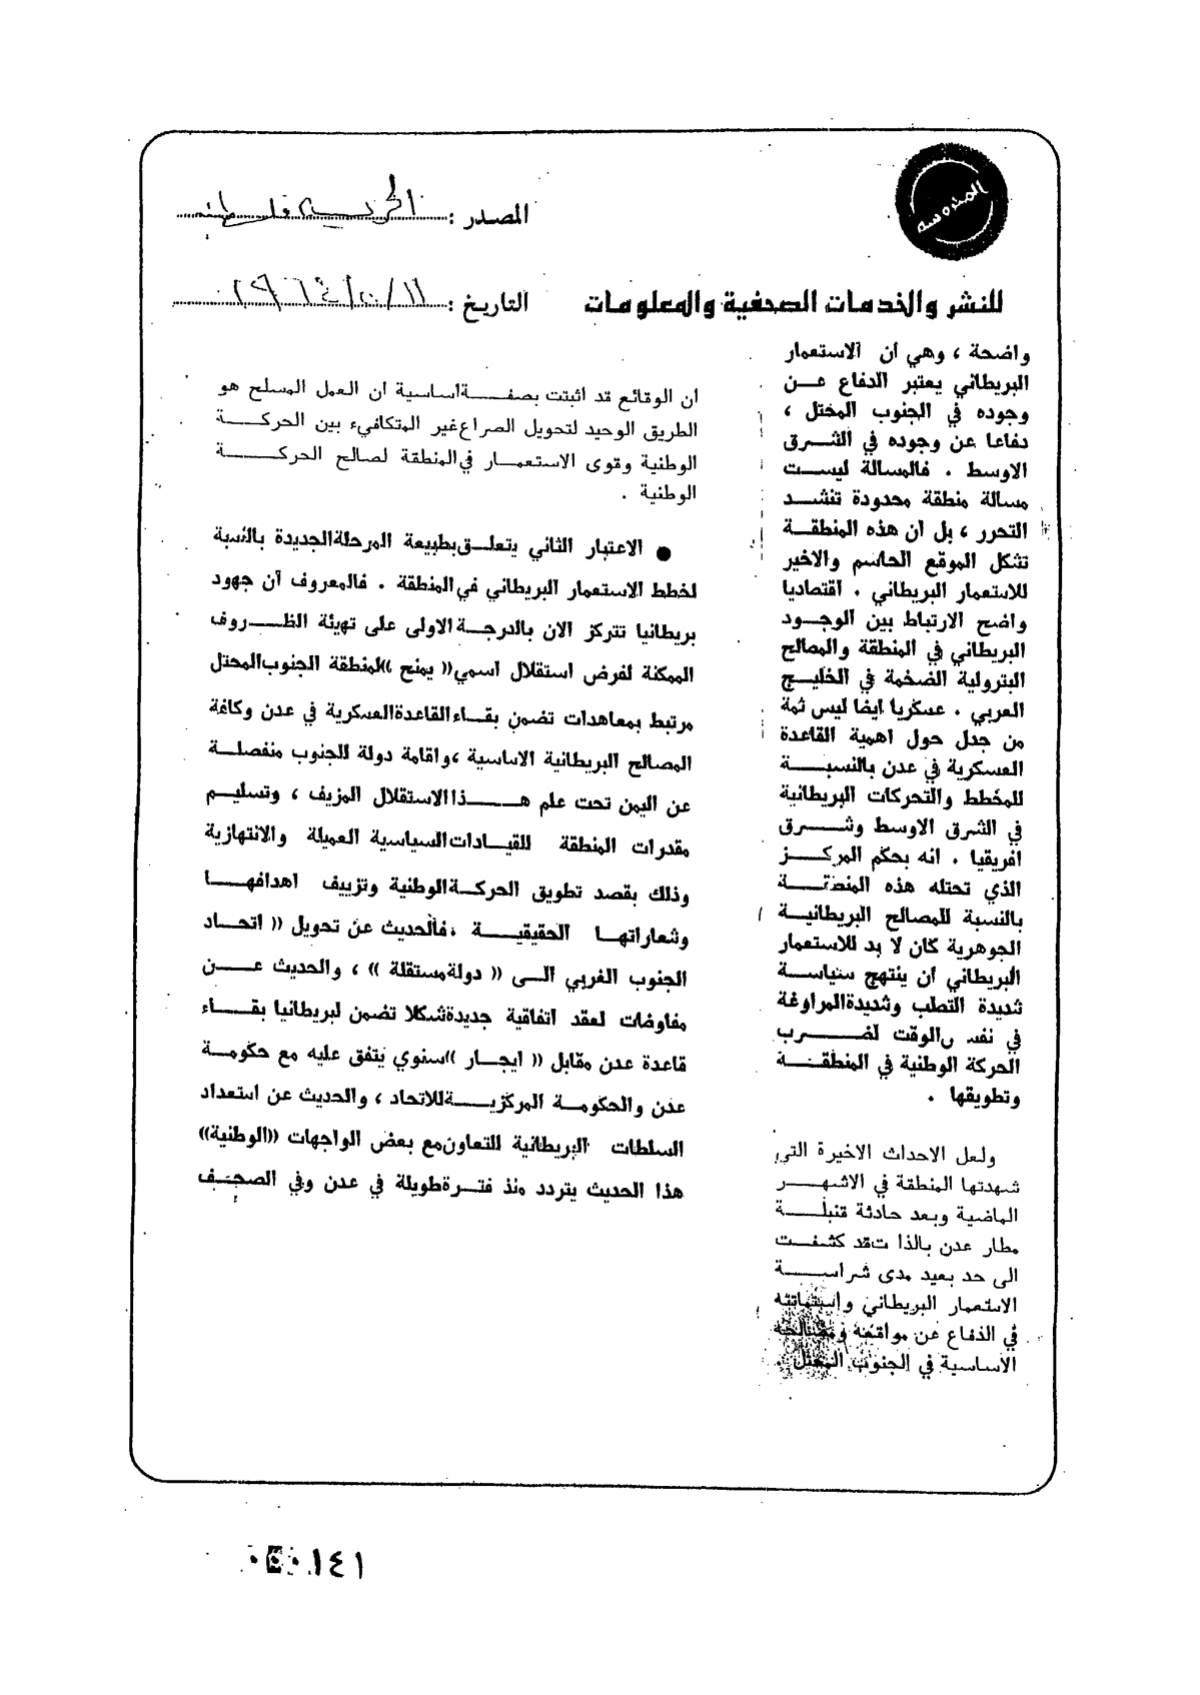 المدوسه
المصدر : الحريه فلسطينيه
للنشر والخدمات الصحفية والمعلومات
التاريخ : ١١/ ١٠/ ١٩٦٤
واضحة ، وهي ان الاستعمار
البريطاني يعتبر الدفاع عـن
وجوده في الجنوب المحتل ،
دفاعا عن وجوده في الشـرق
الاوسط . فالمسالة ليسـت
مسالة منطقة محدودة تنشـد
التحرر ، بل ان هذه المنطقـة
تشكل الموقع الحاسم والاخير
للاستعمار البريطاني . اقتصاديا
واضح الارتباط بين الوجـود
البريطاني في المنطقة والمصالح
البترولية الضخمة في الخليـج
العربي . عسكريا ايضا ليس ثمة
من جدل حول اهمية القاعدة
العسكرية في عدن بالنسبـة
للمخطط والتحركات البريطانية
في الشرق الاوسط وشـرق
افريقيا . انه بحكم المركـز
الذي تحتله هذه المنطقـة
بالنسبة للمصالح البريطانيـة
الجوهرية كان لا بد للاستعمار
البريطاني ان ينتهج سياسـة
شديدة التصلب وشديدةالمراوغة
في نفس الوقت لضـرب
الحركة الوطنية في المنطقـة
وتطويقها .
ولعل الاحداث الاخيرة التي
شهدتها المنطقة في الاشهـر
الماضية وبعد حادثة قنبلـة
مطار عدن بالذا تقد كشفـت
الى حد بعيد مدى شراسـة
الاستعمار البريطاني واستماتته
في الدفاع عن مواقعه ومصالحه
الاساسية في الجنوب المحتل .
ان الوقائع قد اثبتت بصفـةاساسية ان العمل المسلح هو
الطريق الوحيد لتحويل الصراعغير المتكافىء بين الحركـة
الوطنية وقوى الاستعمـار فيالمنطقة لصالح الحركـة
الوطنية .
● الاعتبار الثاني يتعلـقبطبيعة المرحلةالجديدة بالنسبة
لخطط الاستعمار البريطاني فيالمنطقة . فالمعروف ان جهود
بريطانيا تتركز الان بالدرجـةالاولى على تهيئة الظـروف
الممكنة لفرض استقلال اسمي(( يمنح ))لمنطقة الجنوبالمحتل
مرتبط بمعاهدات تضمن بقـاءالقاعدةالعسكرية في عدن وكافة
المصالح البريطانية الاساسية ،واقامة دولة للجنوب منفصلـة
عن اليمن تحت علم هـذاالاستقلال المزيف ، وتسليـم
مقدرات المنطقة للقيـاداتالسياسية العميلة والانتهازية
وذلك بقصد تطويق الحركـةالوطنية وتزييف اهدافهـا
وشعاراتهـا الحقيقيـة ،فالحديث عن تحويل (( اتحـاد
الجنوب الغربي الـى (( دولةمستقلة )) ، والحديث عـن
مفاوضات لعقد اتفاقية جديدةشكلا تضمن لبريطانيا بقـاء
قاعدة عدن مقابل (( ايجـار ))سنوي يتفق عليه مع حكومـة
عدن والحكومـة المركزيـةللاتحاد ، والحديث عن استعداد
السلطات البريطانية للتعاونمع بعض الواجهات ((الوطنية))
هذا الحديث يتردد منذ فتـرةطويلة في عدن وفي الصحـف